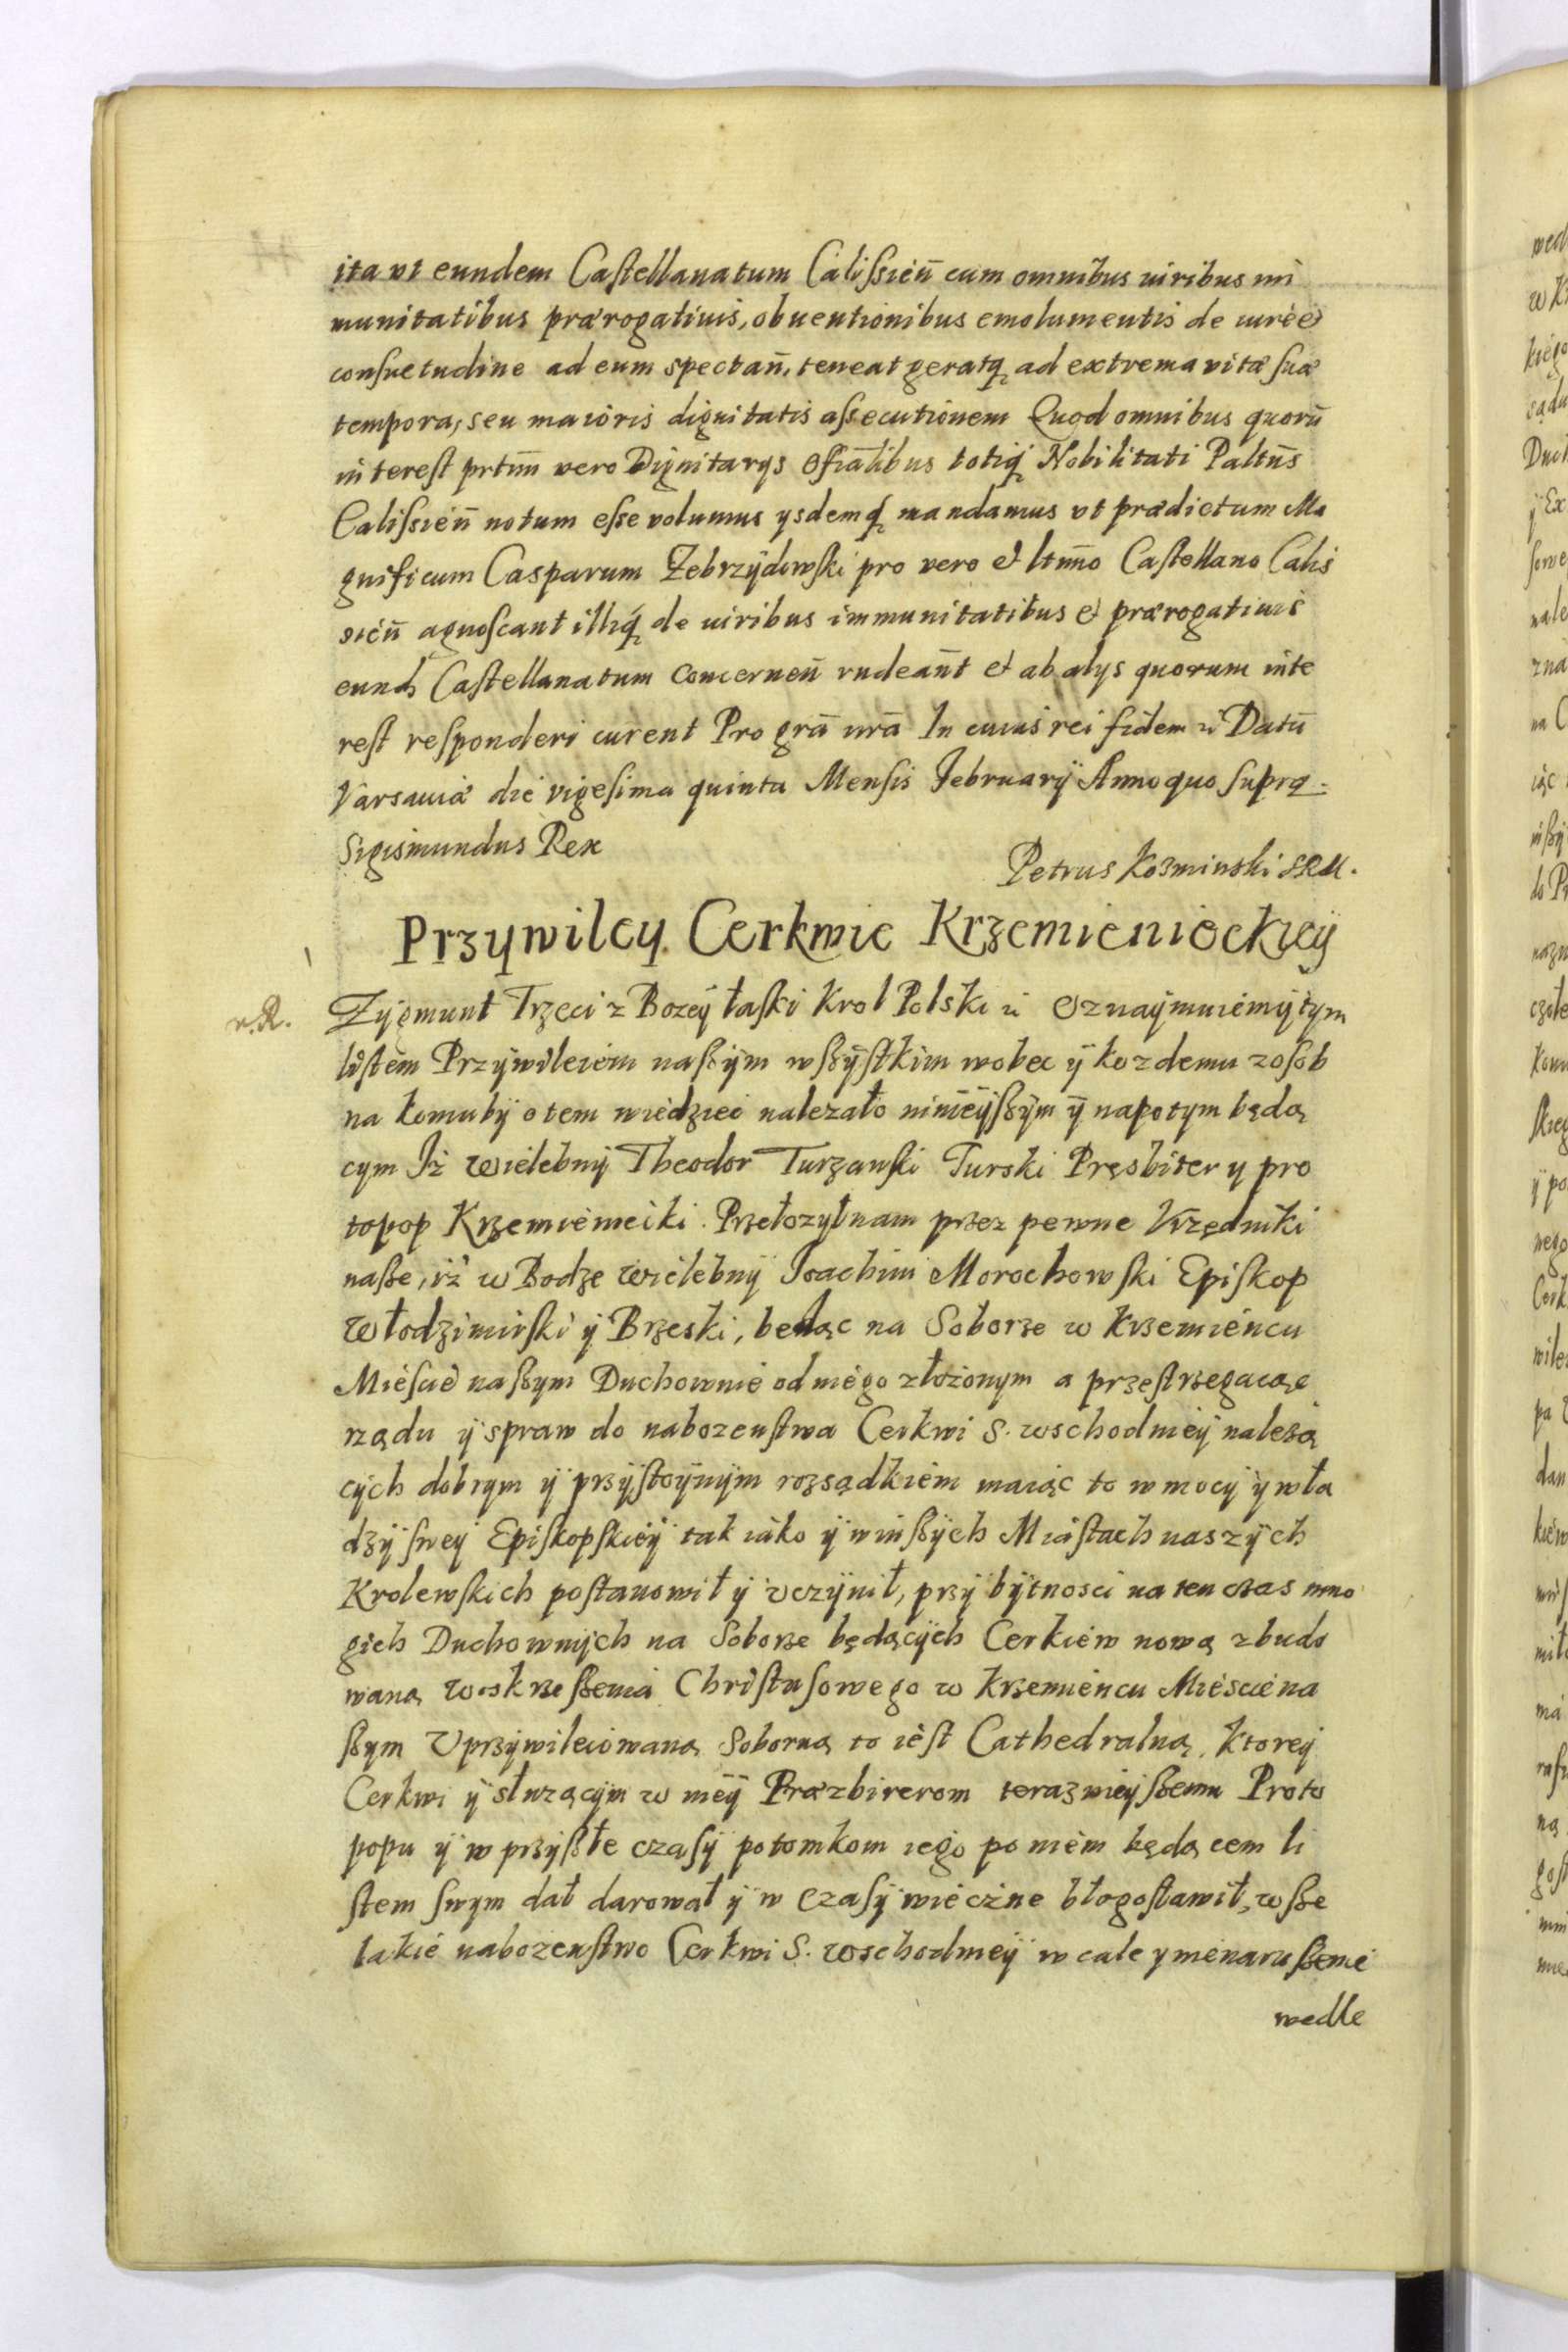 ita vt eundem Castellanatum Calissień cum omnibus iuribus im
munitatibus prærogatiuis, obuentionibus emolumentis de iure et
consuetudine ad eum spectań, teneat geratq, ad extrema vitæ suæ
tempora, seu maioris dignitatis assecutionem Quod omnibus quorū
interest prtim̄ vero Dignitarys Offialibus totiq, Nobilitati Paltn̄s
Calissień notum esse volumus ysdemq, mandamus vt prædictum Ma
gnificum Casparum Zebrzydowski pro vero et ltim̄o Castellano Calis
sień agnoscant illiq, de iuribus immunitatibus et prærogatiuis
eund, Castellanatum concerneń rndeant et ab alys quorum inte
rest responderi curent Pro grā nrā In cuius rei fidem Datū
Varsauiæ die vigesima quinta Mensis February Anno quo supra.
Sigismundus Rex
Petrus Kozminski SRM.
Przywiley Cerkwie Krzemienieckiey
r. R.
Zygmunt Trzeci z Bozey łaski Krol Polski Oznaymuiemy tym
listem Przywileiem naszym wszystkim wobec y kozdemu zosob
na komuby o tem wiedziec nalezało ninieyszym y napotym będą
cym Iż Wielebny Theodor Turzanski Turski Pręsbiter y pro
topop Krzemieniecki. Przełozył nam przez pewne Vrzędniki
nasze, iż w Bodze wielebny Ioachim Morochowski Episkop
Włodzimirski y Brzeski, będąc na Soborze w Krzemiencu
Miescie naszym Duchownie od niego złożonym a przestrzegaiąc
rządu y spraw do nabozenstwa Cerkwi S. wschodniey należą
cych dobrym y przystoynym rozsądkiem maiąc to w mocy y wła
dzy swey Episkopskiey tak iako y winszych Miastach naszych
Krolewskich postanowił y vczynił, przy bytnosci na ten czas mno
gich Duchownych na Soborze będących Cerkiew nową zbudo
waną Woskrzeszenia Christusowego w Krzemiencu Miescie na
szym Vprzywileiowaną Soborną to iest Cathedralną, Ktorey
Cerkwi y słuzącym w niey Præzbirerom terazmieyszemu Proto
popu y w przyszłe czasy potomkom iego po niem będącem li
stem swym dał darował y w czasy wieczne błogosławił, wsze
lakie nabozenstwo Cerkwi S. wschodniey w cale y nienaruszenie
wedle